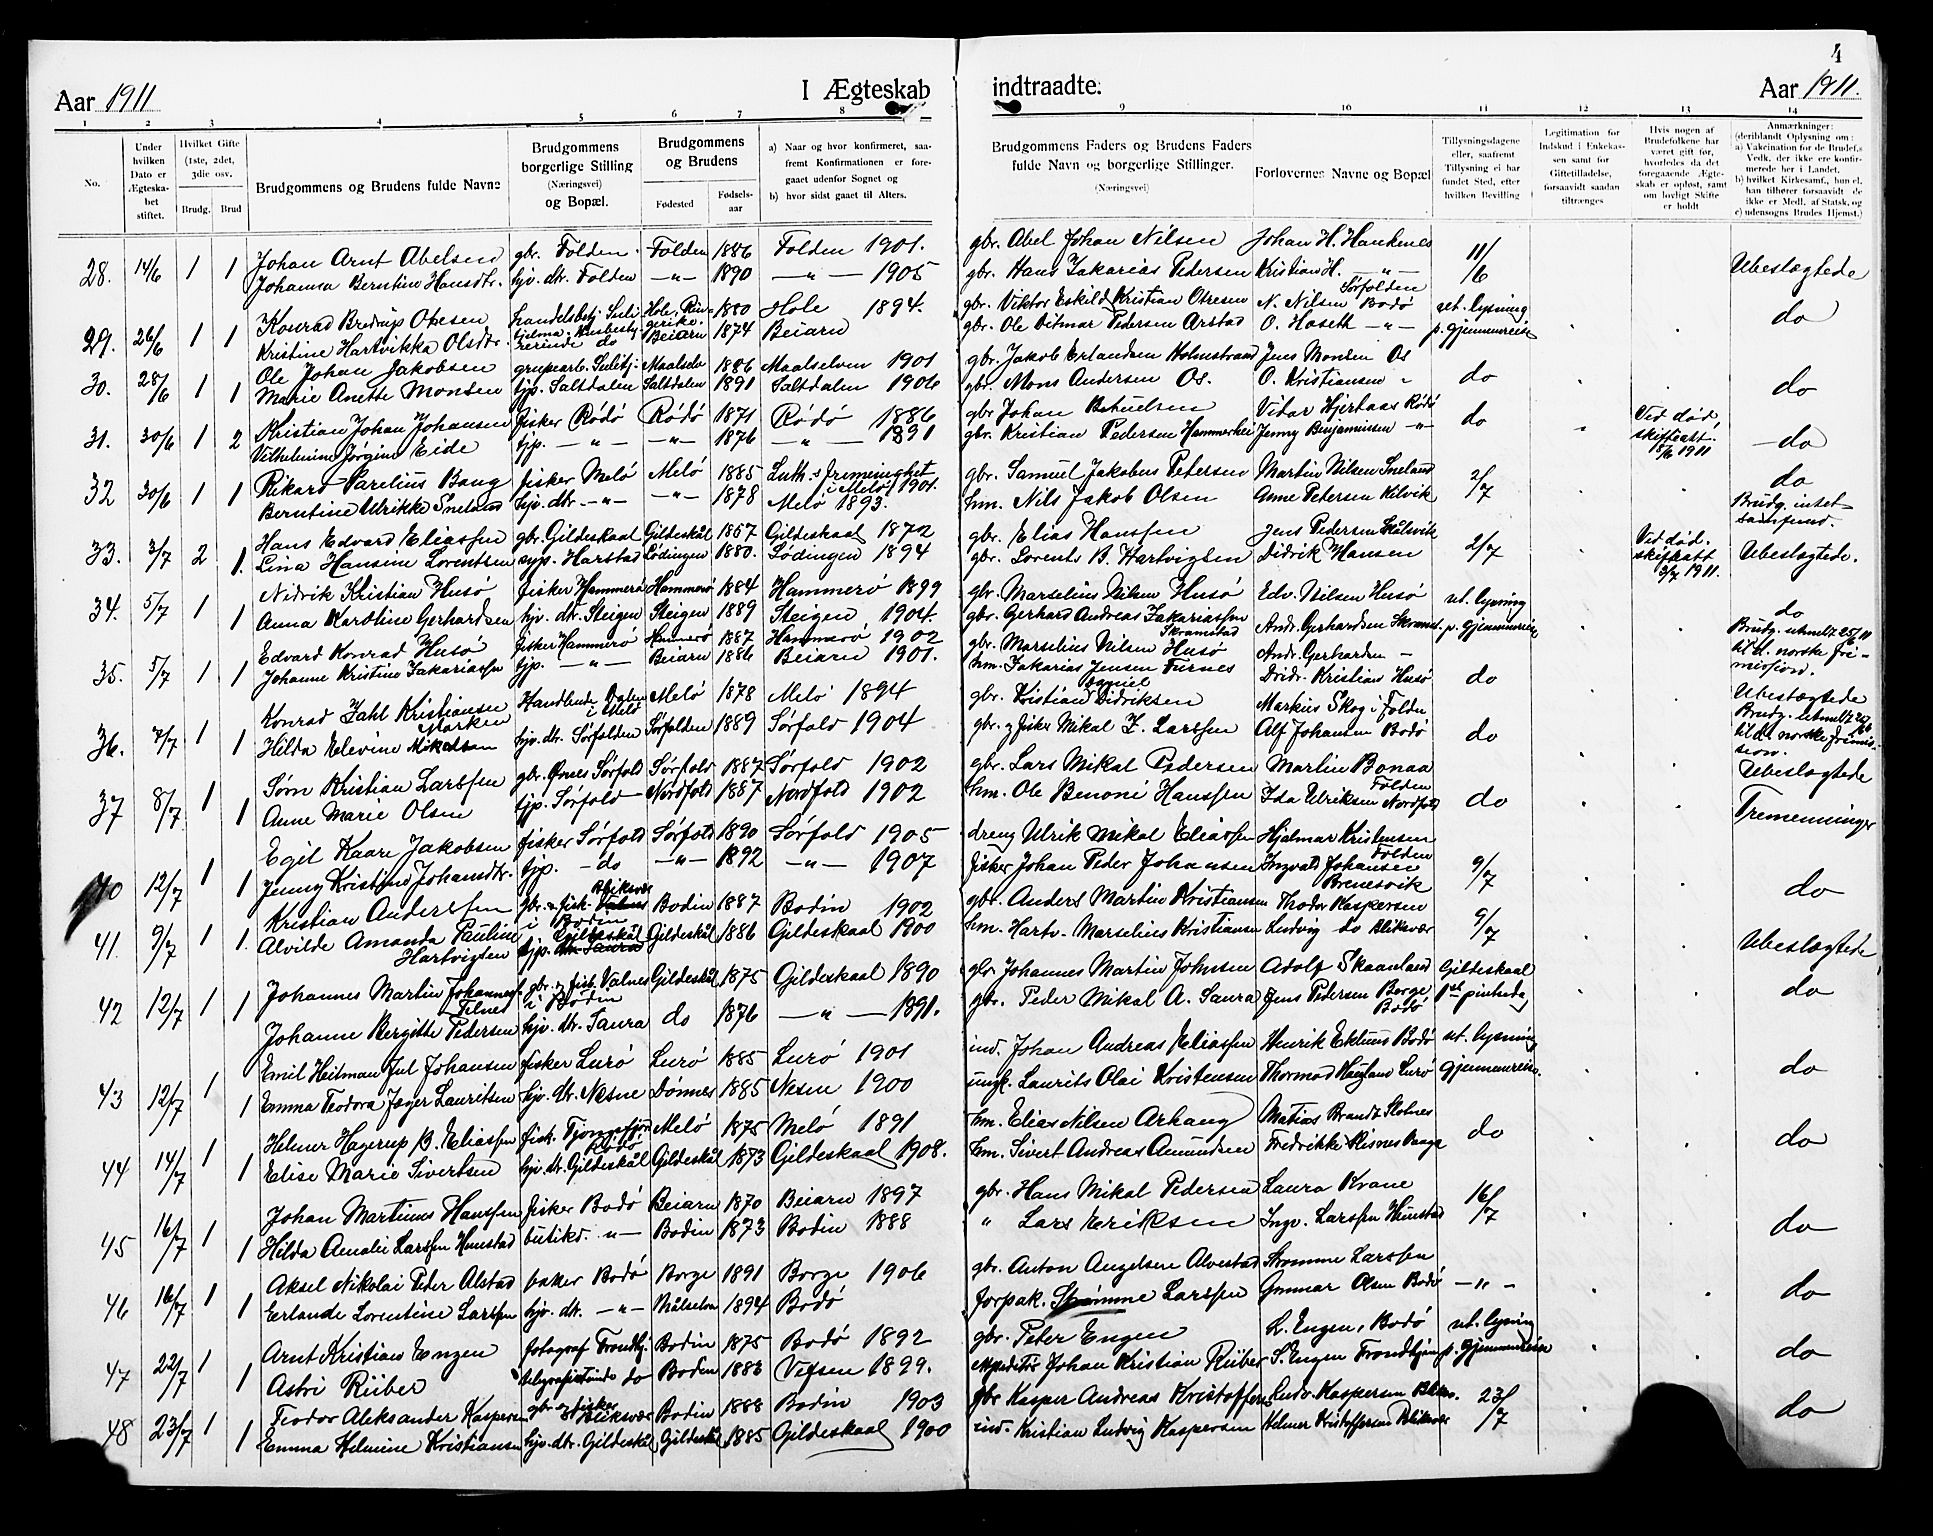 4
Aar 1911
I Ægteskab
indtraadte.
Aar 1911.
1 2 3 4 5 6 7 8 9 10 11 12 13 14
No.
Under hvilken Dato er Ægteskabet stiftet.
Hvilket Gifte (1ste, 2det, 3die osv.
Brudg. Brud
Brudgommens og Brudens fulde Navne
Brudgommens borgerlige Stilling (Næringsvei) og Bopæl.
Brudgommens og Brudens
Fødested
Fødselsaar
a) Naar og hvor konfirmeret, saafremt Konfirmationen er foregaaet udenfor Sognet og
b) hvor sidst gaaet til Alters.
Brudgommens Faders og Brudens Faders fulde Navn og borgerlige Stillinger.
(Næringsvei)
Forlovernes Navne og Bopæl
Tillysningsdagene eller, saafremt Tillysning ei har fundet Sted, efter hvilken Bevilling
Legitimation for Indskud i Enkekassen samt for Giftetilladelse, forsaavidt saadan tiltrænges
Hvis nogen af Brudefolkene har været gift før, hvorledes da det foregaaende Ægteskab er opløst, samt om lovligt Skifte er holdt
Anmærkninger:
(deriblandt Oplysning om:
a) Vakcination for de Brudef.s Vedk. der ikke ere konfirmerede her i Landet.
b) hvilket Kirkesamf., hun el. han tilhører forsaavidt de ikke er Medl. af Statsk. og
c) udensogns Brudes Hjemst.)
28. 14/6 1 1 Johan Arnt Abelsen gbr. Folden Folden 1886 Folden 1901. gbr. Abel Johan Nilsen Johan H. Hanknes 11/6 Ubeslægtede
Johanna Berntine Hansdtr. hjv. dtr. Folden -"- 1890 -"- 1905 gbr. Hans Zakarias Pedersen Kristian H. -"- Sørfolden
29. 26/6 1 1 Konrad Bredrup Olsesen handelsbetj. Suli- Hole, Rin- 1880 Hole 1894. gbr. Viktor Eskild Kristian Olresen N. Nilsen Bodø ut. lysning do
Kristine Hartvikka Olsdtr. do Beiarn 1874 Beiarn gbr. Ole Ditmar Pedersen Arstad O. Haseth -"- p. gjennemreise
30. 28/6 1 1 Ole Johan Jakobsen grubearb. Sulitj. Maalselv 1886 Maalselven 1901 gbr. Jakob Erlandsen Holmstrand Jens Monsen Os do do
Marie Anette Monsen tjp. Saltdalen Saltdalen 1891 Saltdalen 1906 gbr. Mons Andersen Os. O. Kristiansen "
31. 30/6 1 2 Kristian Johan Johansen fisker Rødø Rødø 1871 Rødø 1886 gbr. Johan Vitar Hjertaas Rødø do Ved død, do
Vilhelmine Jørgine Eide tjp. -"- -"- 1876 -"- 1891 gbr. Kristian Pedersen Hammerhei Jenny Benjaminsen -"- skifteatt. 15/6 1911
32 30/6 1 1 Rikard Parelius Bang fisker Melø Melø 1885 Luth. Fremenighet i Melø, 1901. gbr. Samuel Jakobus Petersen Martin Nilsen Sneland 2/7 do
Berntine Ulrikke Sneland hjv. dtr. -"- -"- 1878 Melø 1893. hm. Nils Jakob Olsen Anne Petersen Kilvik Brudg. intet samfund.
33. 3/7 2 1. Hans Edvard Eliassen gbr. Gildeskaal Gildeskål 1857 Gildeskaal 1872 gbr. Elias Hanssen Jens Pedersen Skålsvik 2/7 Ved død. Ubeslægtede.
Lina Hansine Lorentsen syp. Harstad Lødingen 1880. Lødingen 1894 gbr. Lorents B. Hartvigsen Didrik Hansen skifteatt 3/7 1911.
34. 5/7 1 1 Nidrik Kristian Husø fisker Hammerø Hammerø 1884 Hammerø 1899 gbr. Marselius Nilsen Husø Edv. Nilsen Husø ut. lysning do
Anna Karoline Gerhardsen hjv. dtr. Steigen Steigen 1889 Steigen 1904. gbr. Gerhard Andreas Zakariassen Skramstad Andr. Gerhardsen Skramst. p. gjennemreise
35. 5/7 1 1 Edvard Konrad Husø fisker Hammerø Hammerø 1887 Hammerø 1902 gbr. Marselius Nilsen Husø Andr. Gerhardsen - do Brudg. utmeldt 25/6 11 til d. norske frimission.
Johanne Kristine Zakariassen tjp. -"- Beiarn 1886 Beiarn 1901. hm. Zakarias Jensen Furnes Didr. Kristian Husø
36. 7/7 1 1 Konrad Zahl Kristiansen Handlende i Melø Melø 1878 Melø 1894 gbr. Kristian Daniel Didriksen Markus Skog i Folden do Ubeslægtede
Hilda Elevine Mikalsen hjv. dtr. Sørfolden Sørfolden 1889 Sørfold 1904 gbr. og fisker Mikal Z. Larssen Alf Johansen Bodø Brudg. utmeldt til d. norske frimission.
37 8/7 1 1 Sørn Kristian Larssen gbr. Øvnes Sørfold Sørfold 1887 Sørfold 1902 gbr. Lars Mikal Pedersen Martin Bonaa Folden do Ubeslægtede
Anne Marie Olsen tjp. Sørfold Nordfold 1887 Nordfold 1902 hm. Ole Benoni Hanssen Ida Ulriksen Nordfold Tremenninger
40 12/7 1 1 Egil Kaare Jakobsen fisker Sørfold Sørfold 1890 Sørfold 1905 dreng Ulrik Mikal Eliassen Hjalmar Kristensen Folden 9/7 do
Jenny Kristine Johansdtr. tjp. - do -"- 1892 -"- 1907 fisker Johan Peder Johansen Ingvald Johansen Brenesvik
41. 9/7 1 1. Kristian Anderssen gbr. & fisk. Bliksvær i Bodin Bodin 1887 Bodin 1902 gbr. Anders Martin Kristiansen Thodor Kaspersen 9/7 Ubeslægtede
Alvilde Amanda Pauline Hartvigsen tjp. Gildeskål Gildeskål 1886 Gildeskaal 1900 hm. Hartv. Marselius Kristiansen Ludvig do Bliksvær
42 12/7 1 1 Johannes Martin Johannes. gbr. og fisk. Valnes i Bodin Gildeskål 1875 Gildeskaal 1890 gbr. Johannes Martin Johnsen Adolf Skaanland Gildeskaal do
Johanne Bergitte Pedersen hjv. dtr. Saura do 1876 -"- 1891. gbr. Peder Mikal A. Saura Jens Pedersen Borge Bodø
43 12/7 1 1 Emil Heitman Jul Johansen fisker Lurø Lurø 1885 Lurø 1901 ind. Johan Andreas Eliassen Henrik Eklund Bodø ut. lysning do
Emma Teodora Jæger Lauritsen hjv. dtr. Nesne Dønnes 1885 Nesne 1900 ungk. Laurits Olai Kristensen Thormod Haugland Lurø gjennemreise.
44 14/7 1 1 Helmer Hagerup B. Eliassen fisk. Tjongsfjor Rødø Melø 1875 Melø 1891 hm. Elias Nilsen Arhaug Matias Brandt Stolnes do do
Elise Marie Sivertsen hjv. dtr. Gildeskål Gildeskål 1873 Gildeskaal 1908. hm. Sivert Andreas Amundsen Fredrikke Risnes
45 16/7 1 1 Johan Martinus Hanssen fisker Bodø Beiarn 1870 Beiarn 1897 gbr. Hans Mikal Pedersen Laura Krane 16/7 do
Hilda Amalie Larssen Hunstad butikd. -"- Bodin 1873 Bodin 1888 " Lars Eriksen Ingv. Larssen Hunstad
46 16/7 1 1 Aksel Nikolai Peder Alstad baker Bodø Borge 1891 Borge 1906 gbr. Anton Angelsen Alvestad Strømme Larssen -"- do
Erlande Lorentine Larssen hjv. dtr. -"- Målselven 1894 Bodø forpak. Strømme Larssen Gunnar Olsen Bodø
47 22/7 1 1 Arnt Kristian Engen fotograf Trondhj. Bodin 1875 Bodø 1892 gbr. Peter Engen L. Engen, Bodø ut. lysning do
Astri Riiber telegrafistinde do Bodin 1883 Vefsen 1899. ekspeditør Johan Kristian Riiber S. Engen Trondhjem p. gjennemreise
48 23/7 1 1 Teodor Aleksander Kaspersen gbr. og fisker Bliksvær Bodin 1888 Bodin 1903 gbr Kasper Andreas Kristoffersen Ludv. Kaspersen Bliksv. 23/7 do
Emma Helmine Kristiansen hjv. dtr. Gildeskål Gildeskål 1885 Gildeskaal 1900 ind. Kristian Ludvig Kaspersen Helmer Kristoffersen Bliksvær